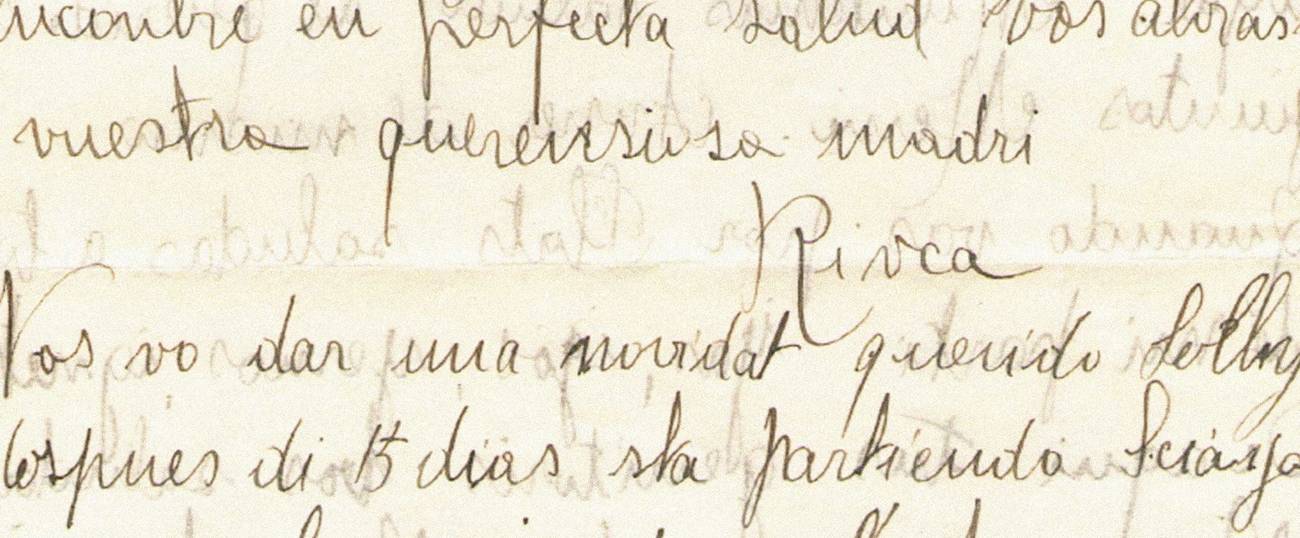 encontre en perfecta salud Vos abras
vuestra querensiosa madri
Rivca
Vos vo dar una novidat querido Solly
despues di 15 dias sta partiendo